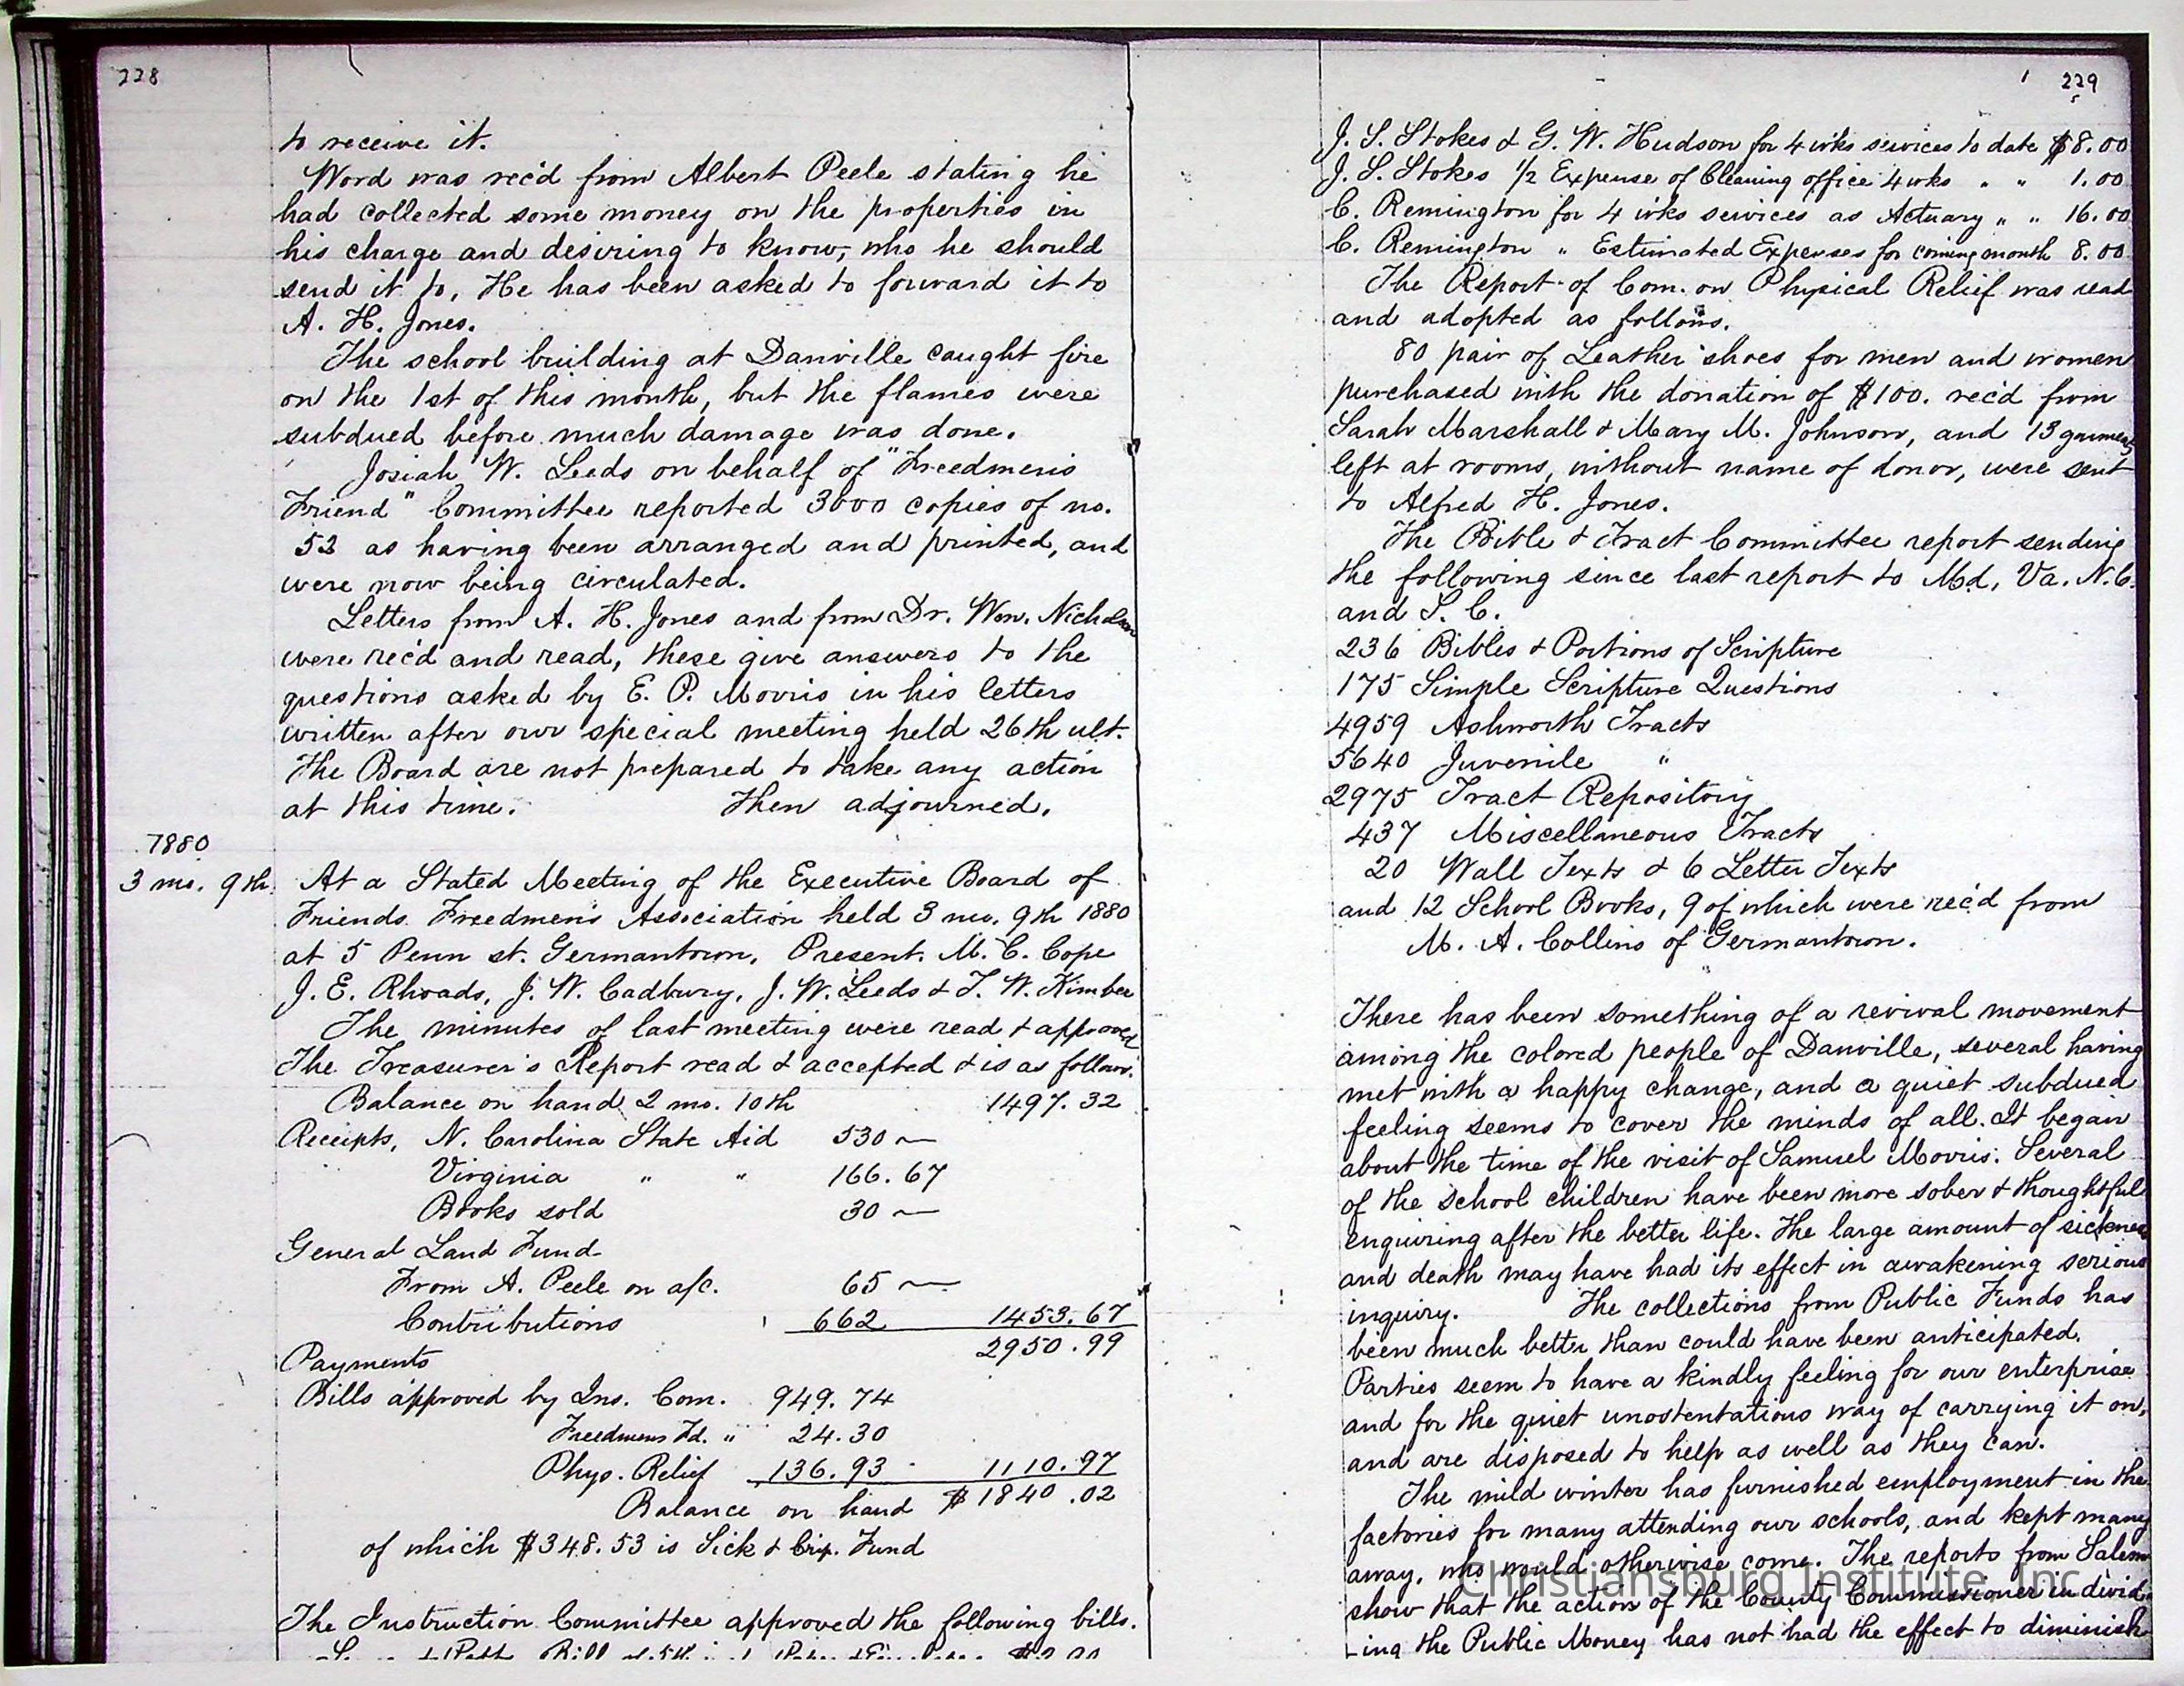 228
to receive it.
Word was rec'd from Albert Peele stating he
had collected some money on the properties in
his charge and desiring to know, who he should
send it to, He has been asked to forward it to
A. H. Jones.
The school building at Danville caught fire
on the 1st of this month, but the flames were
subdued before much damage was done.
Josiah W. Leeds on behalf of "Freedmen's
Friend" Committee reported 3000 copies of no.
52 as having been arranged and printed, and
were now being circulated.
Letters from A. H. Jones and from Dr. Wm. Nicholson
were rec'd and read, these give answers to the
questions asked by E. P. Morris in his letters
written after our special meeting held 26th ult.
The Board are not prepared to take any action
at this time. Then adjourned.
1880
3 mo. 9th. At a Stated Meeting of the Executive Board of
Friends Freedmen's Association held 3 mo. 9th 1880
at 5 Penn st. Germantown, Present. M. C. Cope
J. E. Rhoads, J. W. Cadbury, J. W. Leeds & T. W. Kimber
The minutes of last meeting were read & approved
The Treasurer's Report read & accepted & is as follows.
Balance on hand 2 mo. 10th 1497.32
Receipts, N. Carolina State Aid 530 —
Virginia " " 166.67
Books sold 30 —
General Land Fund
From A. Peele on a/c. 65 —
Contributions 662 1453.67
2950.99
Payments
Bills approved by Ins. Com. 949.74
Freedmens Fd. " 24.30
Phys. Relief 136.93 1110.97
Balance on hand $1840.02
of which $348.53 is Sick & Crip. Fund
The Instruction Committee approved the following bills.
229
J. S. Stokes & G. W. Hudson for 4 wks services to date $8.00
J. S. Stokes 1/2 Expense of Cleaning office 4 wks " " 1.00
C. Remington for 4 wks services as Actuary " " 16.00
C. Remington " Estimated Expenses for coming month 8.00
The Report of Com. on Physical Relief was read
and adopted as follows.
80 pair of Leather shoes for men and women
purchased with the donation of $100. rec'd from
Sarah Marshall & Mary M. Johnson, and 13 garments
left at rooms, without name of donor, were sent
to Alfred H. Jones.
The Bible & Tract Committee report sending
the following since last report to Md, Va. N.C.
and S. C.
236 Bibles & Portions of Scripture
175 Simple Scripture Questions
4959 Ashworth Tracts
5640 Juvenile "
2975 Tract Repository
437 Miscellaneous Tracts
20 Wall Texts & 6 Letter Texts
and 12 School Books, 9 of which were rec'd from
M. A. Collins of Germantown.
There has been something of a revival movement
among the colored people of Danville, several having
met with a happy change, and a quiet subdued
feeling seems to cover the minds of all. It began
about the time of the visit of Samuel Morris. Several
of the school children have been more sober & thoughtful
enquiring after the better life. The large amount of sickness
and death may have had its effect in awakening serious
inquiry. The collections from Public Funds has
been much better than could have been anticipated.
Parties seem to have a kindly feeling for our enterprise
and for the quiet unostentatious way of carrying it on,
and are disposed to help as well as they can.
The mild winter has furnished employment in the
factories for many attending our schools, and kept many
away, who would otherwise come. The reports from Salem
show that the action of the County Commissioner in divid-
-ing the Public Money has not had the effect to diminish
Christiansburg Institute, Inc